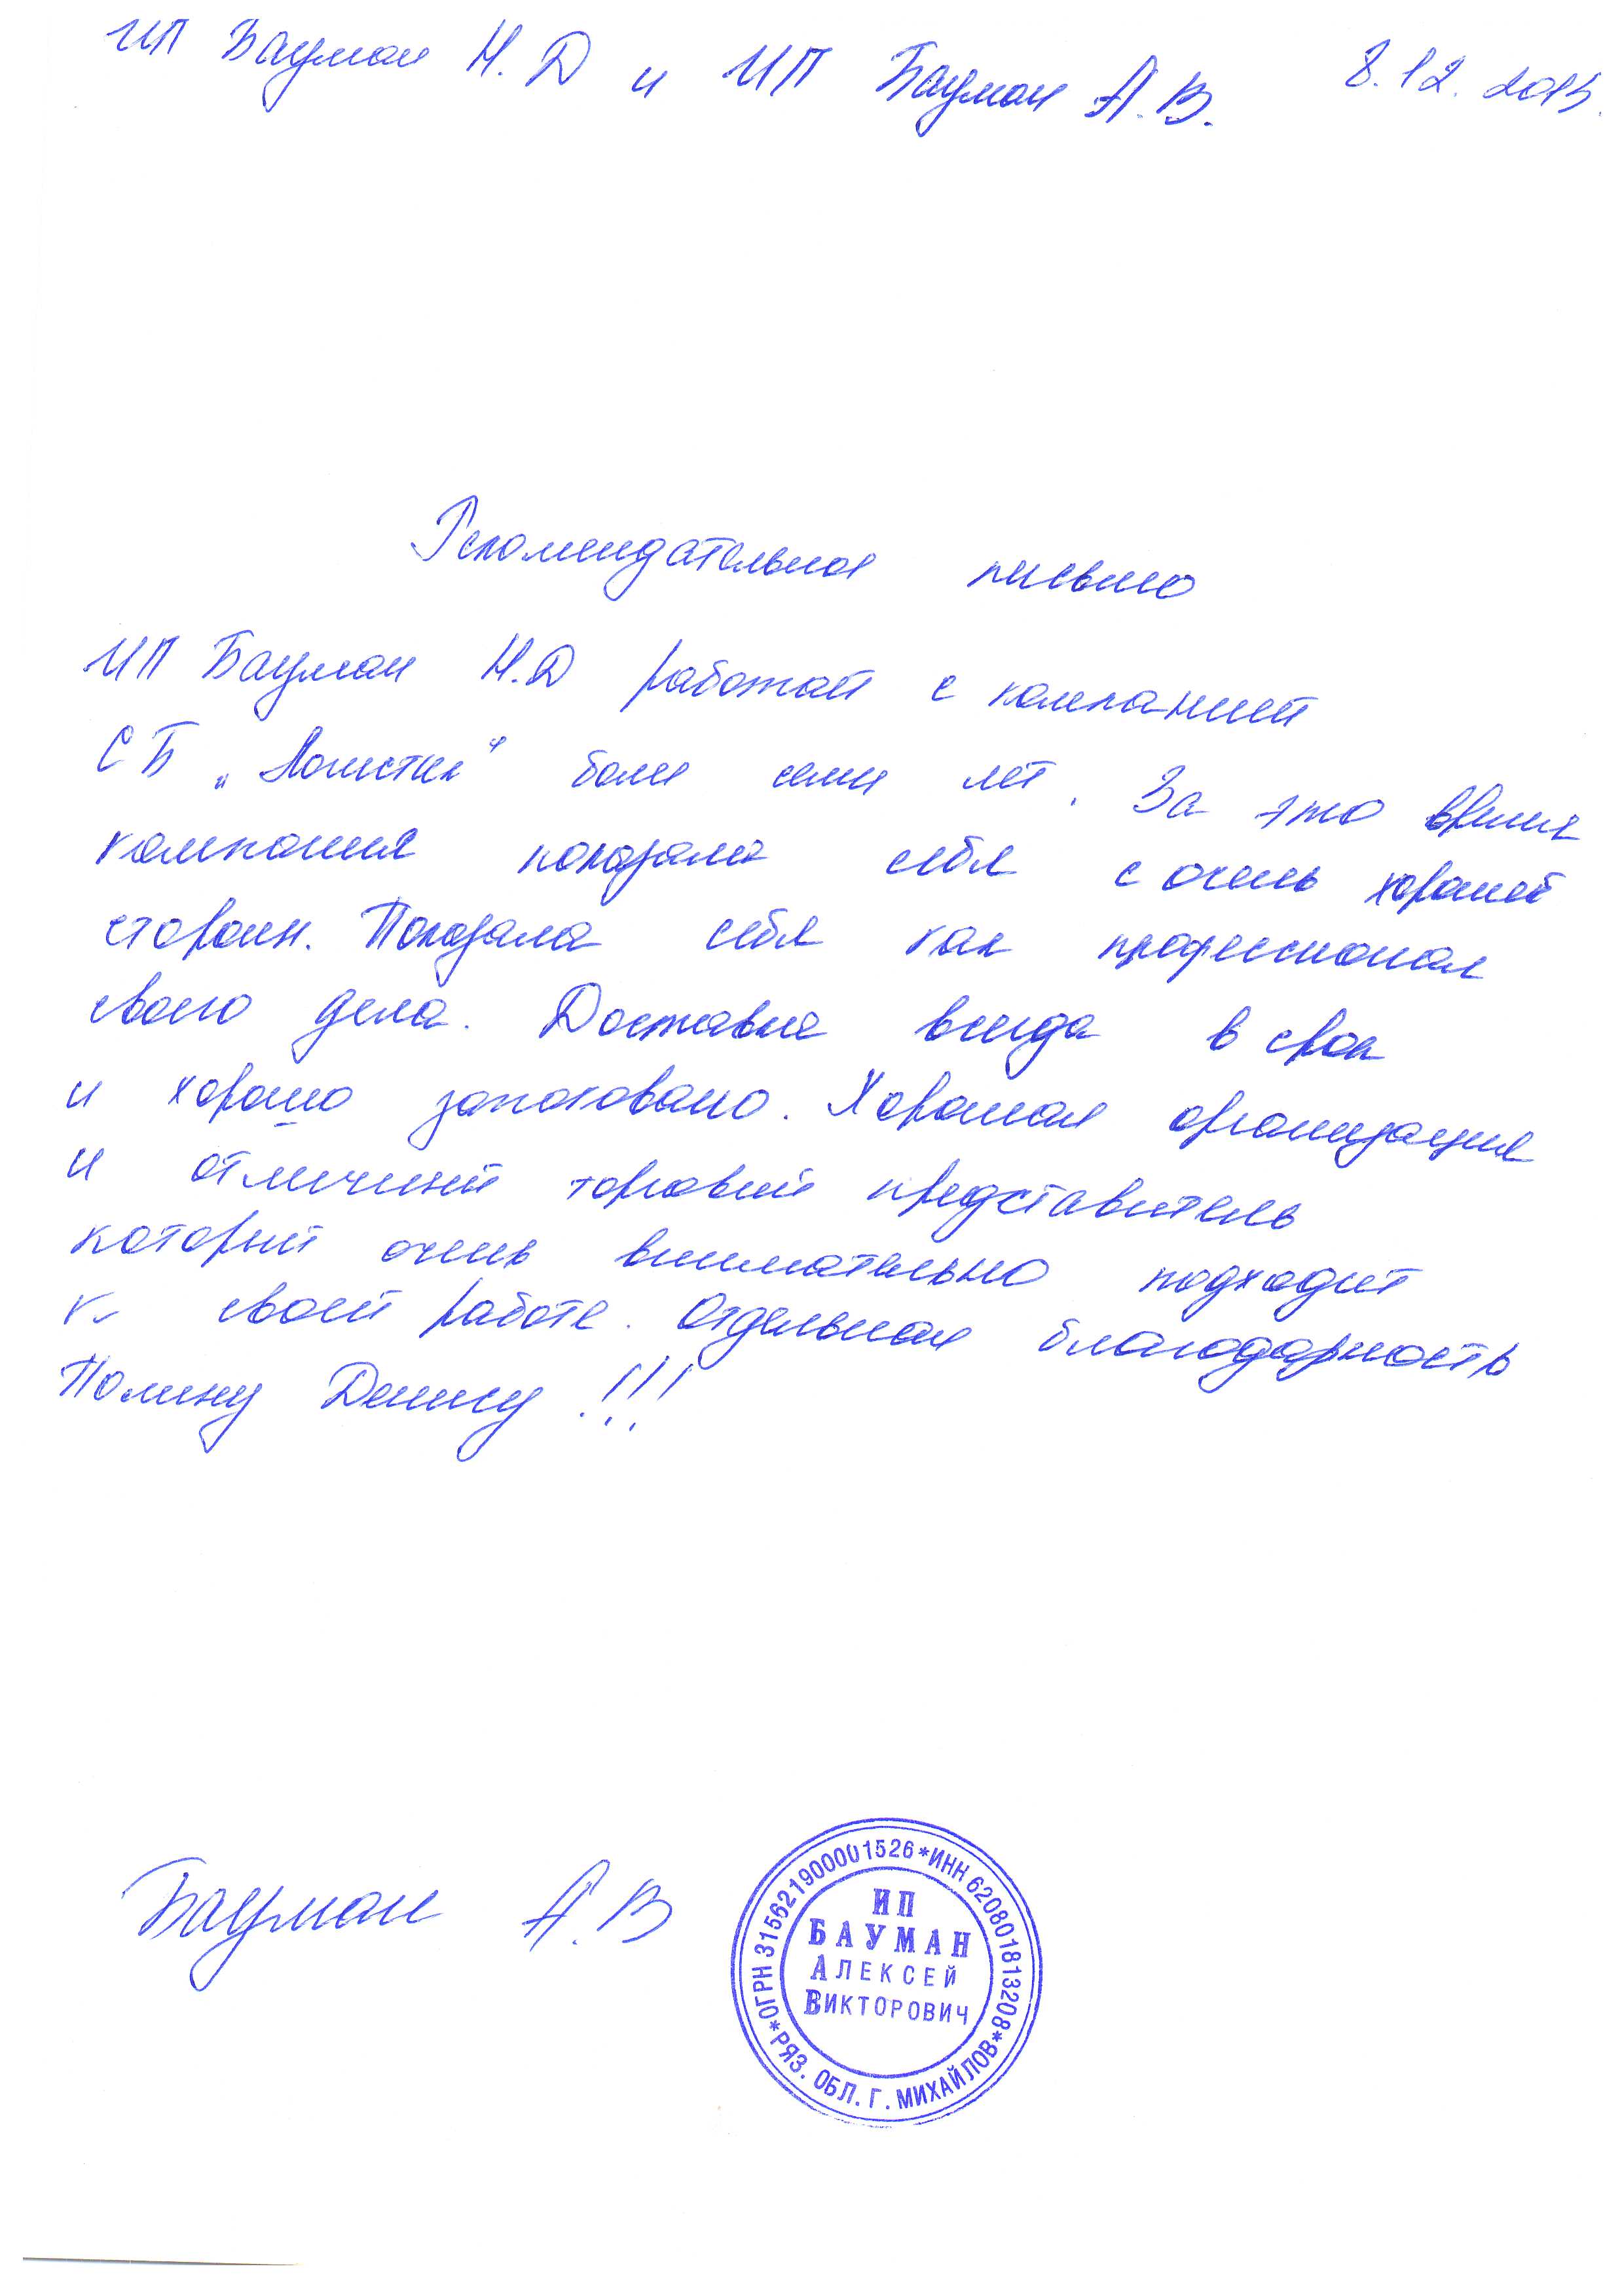 ИП Бауман Н.Д и ИП Бауман А.В. 8.12.2015.
Рекомендательное письмо
ИП Бауман Н.Д работает с компанией
СБ „Логистик“ более семи лет. За это время
компания показала себя с очень хорошей
стороны. Показала себя как профессионал
своего дела. Доставка всегда в срок
и хорошо запаковано. Хорошая организация
и отличный торговый представитель
который очень внимательно подходит
к своей работе. Отдельная благодарность
Полину Денису !!!
Бауман А.В
*ОГРН 315621900001526*ИНН 620801813208*
ИП
БАУМАН
АЛЕКСЕЙ
ВИКТОРОВИЧ
РЯЗ. ОБЛ. Г. МИХАЙЛОВ